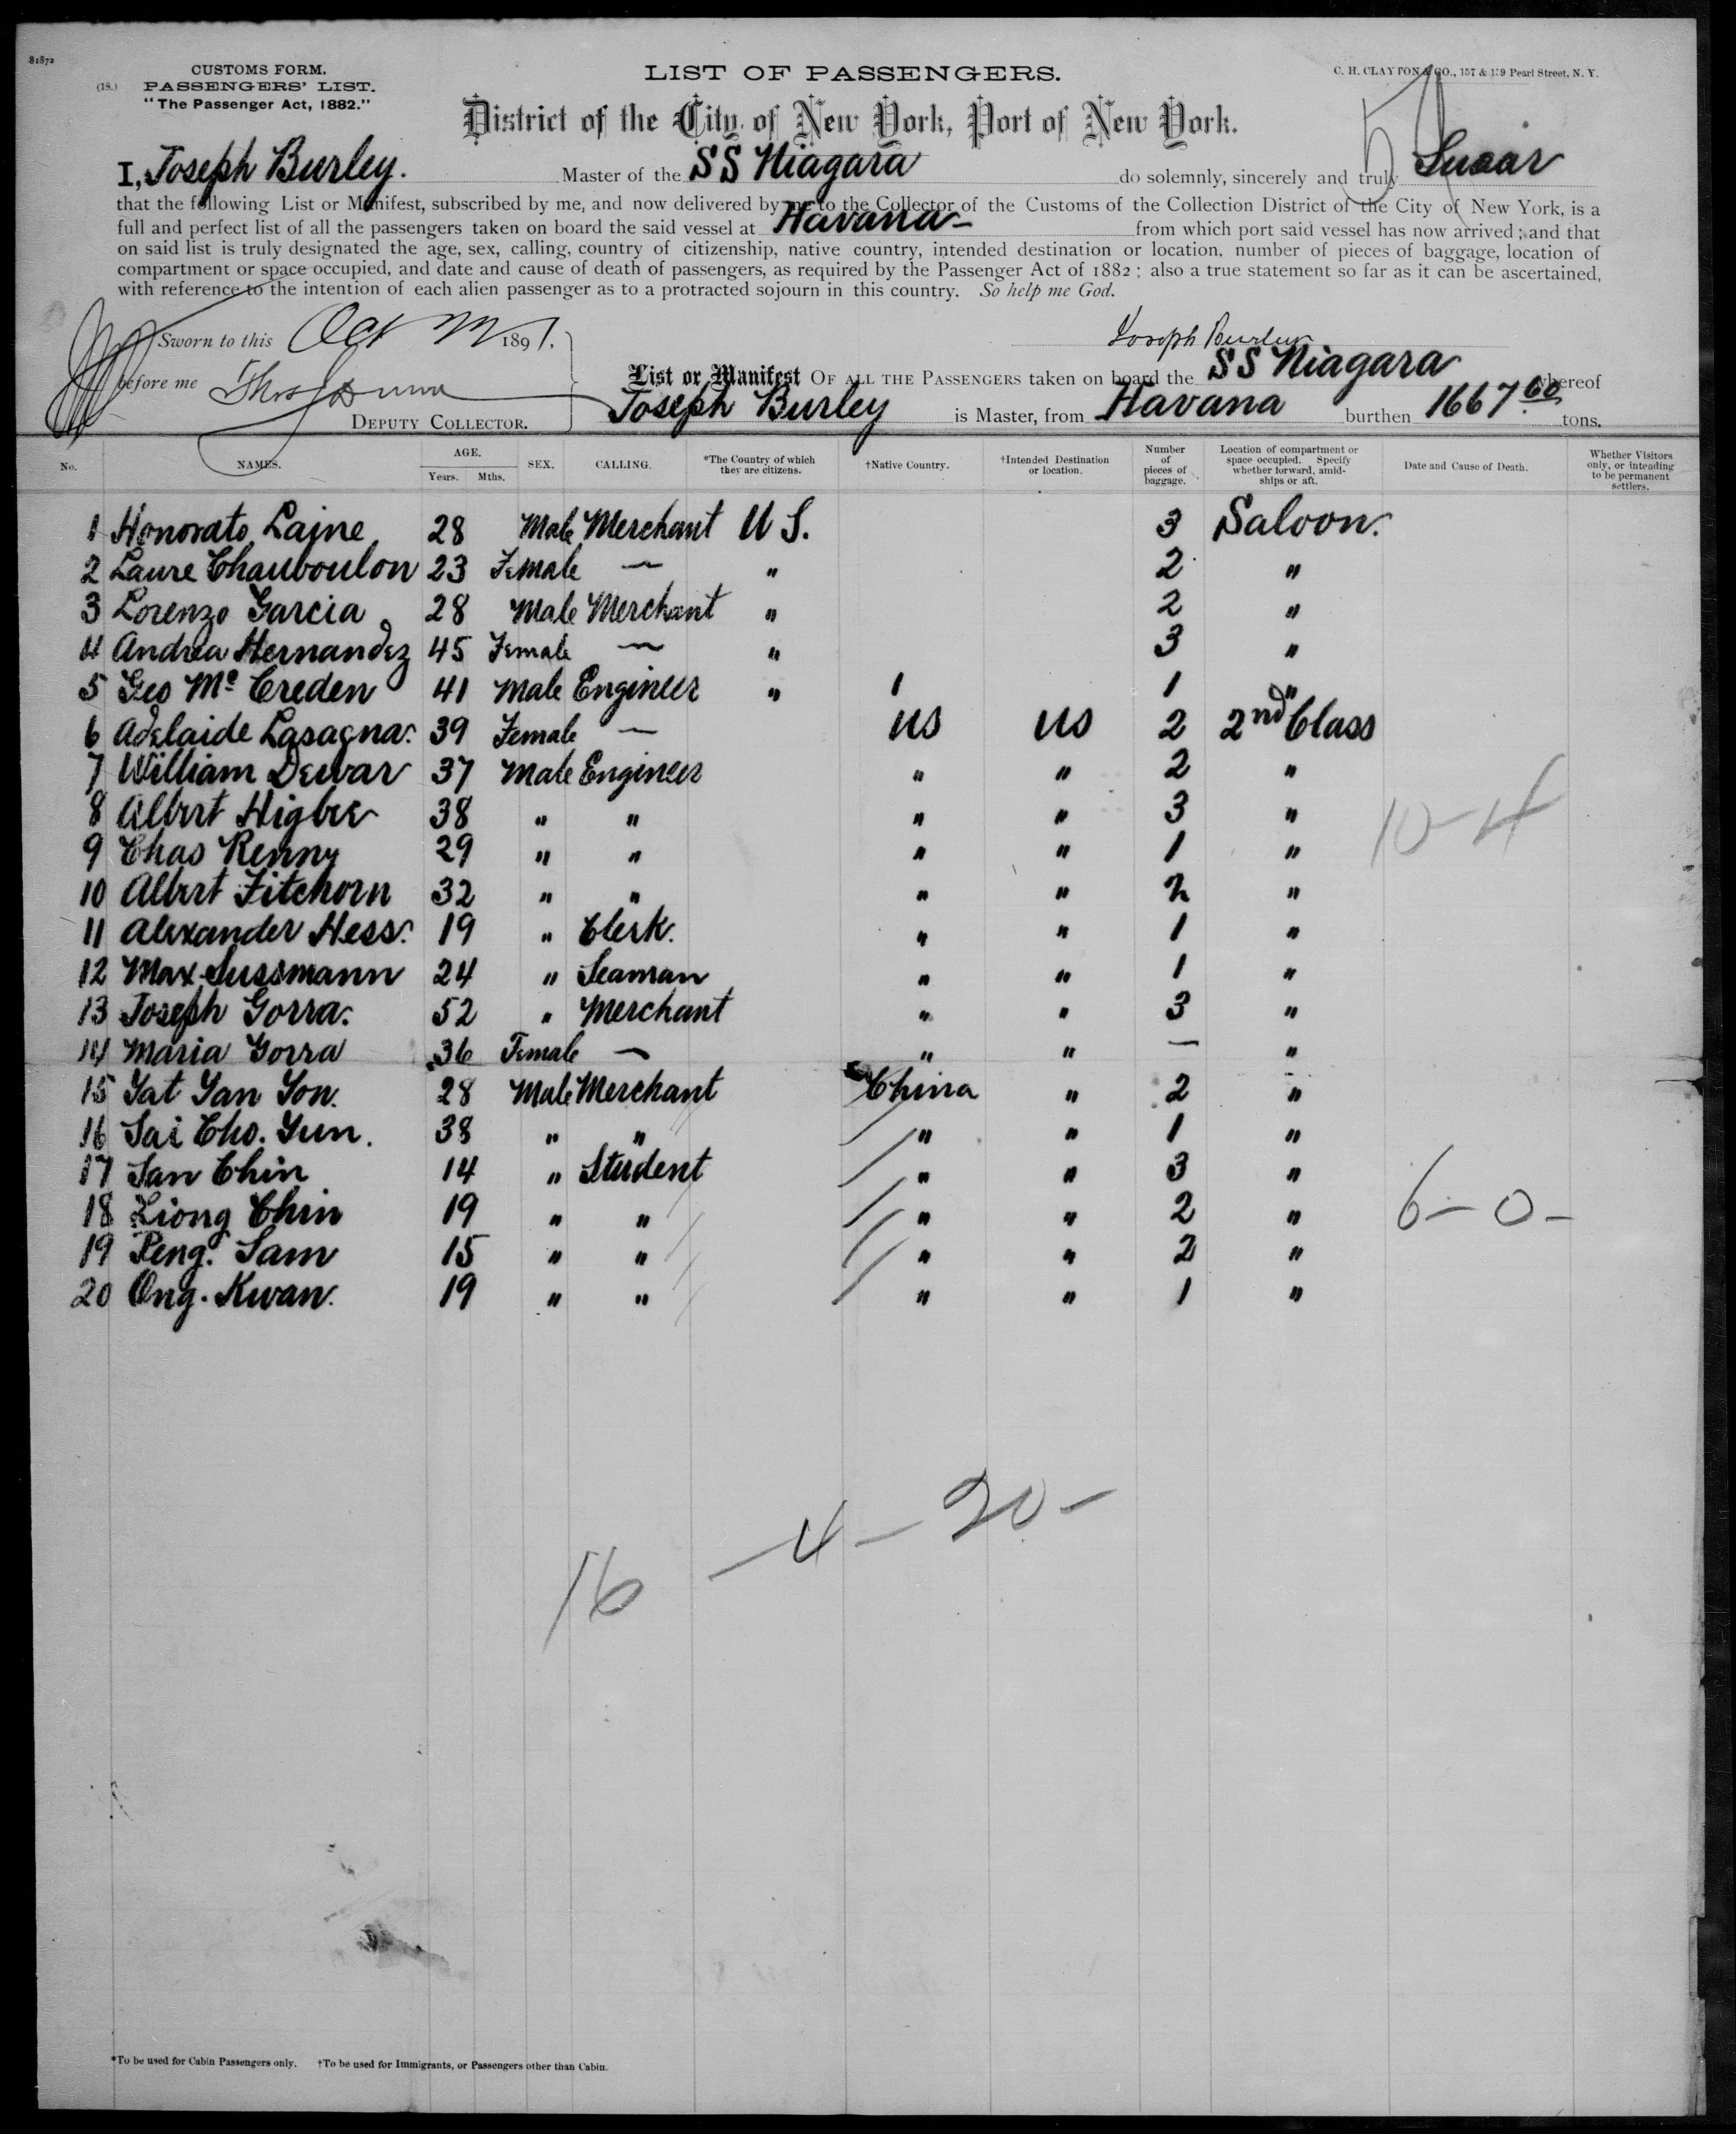 81872
CUSTOMS FORM.
(18.) PASSENGERS' LIST.
"The Passenger Act, 1882."
LIST OF PASSENGERS.
C. H. CLAYTON & CO., 157 & 159 Pearl Street, N. Y.
District of the City of New York, Port of New York.
I, Joseph Burley. Master of the SS Niagara do solemnly, sincerely and truly Swear
that the following List or Manifest, subscribed by me, and now delivered by me to the Collector of the Customs of the Collection District of the City of New York, is a
full and perfect list of all the passengers taken on board the said vessel at Havana from which port said vessel has now arrived; and that
on said list is truly designated the age, sex, calling, country of citizenship, native country, intended destination or location, number of pieces of baggage, location of
compartment or space occupied, and date and cause of death of passengers, as required by the Passenger Act of 1882; also a true statement so far as it can be ascertained,
with reference to the intention of each alien passenger as to a protracted sojourn in this country. So help me God.
Sworn to this Oct 1897.
Joseph Burley
before me
DEPUTY COLLECTOR.
List or Manifest OF ALL THE PASSENGERS taken on board the SS Niagara whereof
Joseph Burley is Master, from Havana burthen 1667 60 tons.
No. NAMES. AGE. Years. Mths. SEX. CALLING. *The Country of which they are citizens. †Native Country. †Intended Destination or location. Number of pieces of baggage. Location of compartment or space occupied. Specify whether forward, amidships or aft. Date and Cause of Death. Whether Visitors only, or intending to be permanent settlers.
1 Honorato Laine 28 Male Merchant U S. 3 Saloon.
2 Laure Chauboulon 23 Female — " 2 "
3 Lorenzo Garcia 28 Male Merchant " 2 "
4 Andrea Hernandez 45 Female — " 3 "
5 Geo Mc Creden 41 Male Engineer " 1 1 "
6 Adelaide Lasagna. 39 Female — US US 2 2nd Class
7 William Dewar 37 Male Engineer " " 2 "
8 Albert Higbee 38 " " " " 3 "
10-4
9 Chas Renny 29 " " " " 1 "
10 Albert Fitchorn 32 " " " " 2 "
11 Alexander Hess. 19 " Clerk. " " 1 "
12 Max Sussmann 24 " Seaman " " 1 "
13 Joseph Gorra. 52 " Merchant " " 3 "
14 Maria Gorra 36 Female — " " — "
15 Yat Yan Yon. 28 Male Merchant China " 2 "
16 Sai Cho. Yun. 38 " " " " 1 "
17 San Chin 14 " Student " " 3 "
18 Liong Chin 19 " " " " 2 "
6-0-
19 Peng. Sam 15 " " " " 2 "
20 Ong. Kwan. 19 " " " " 1 "
16 — 4 — 20 —
*To be used for Cabin Passengers only. †To be used for Immigrants, or Passengers other than Cabin.